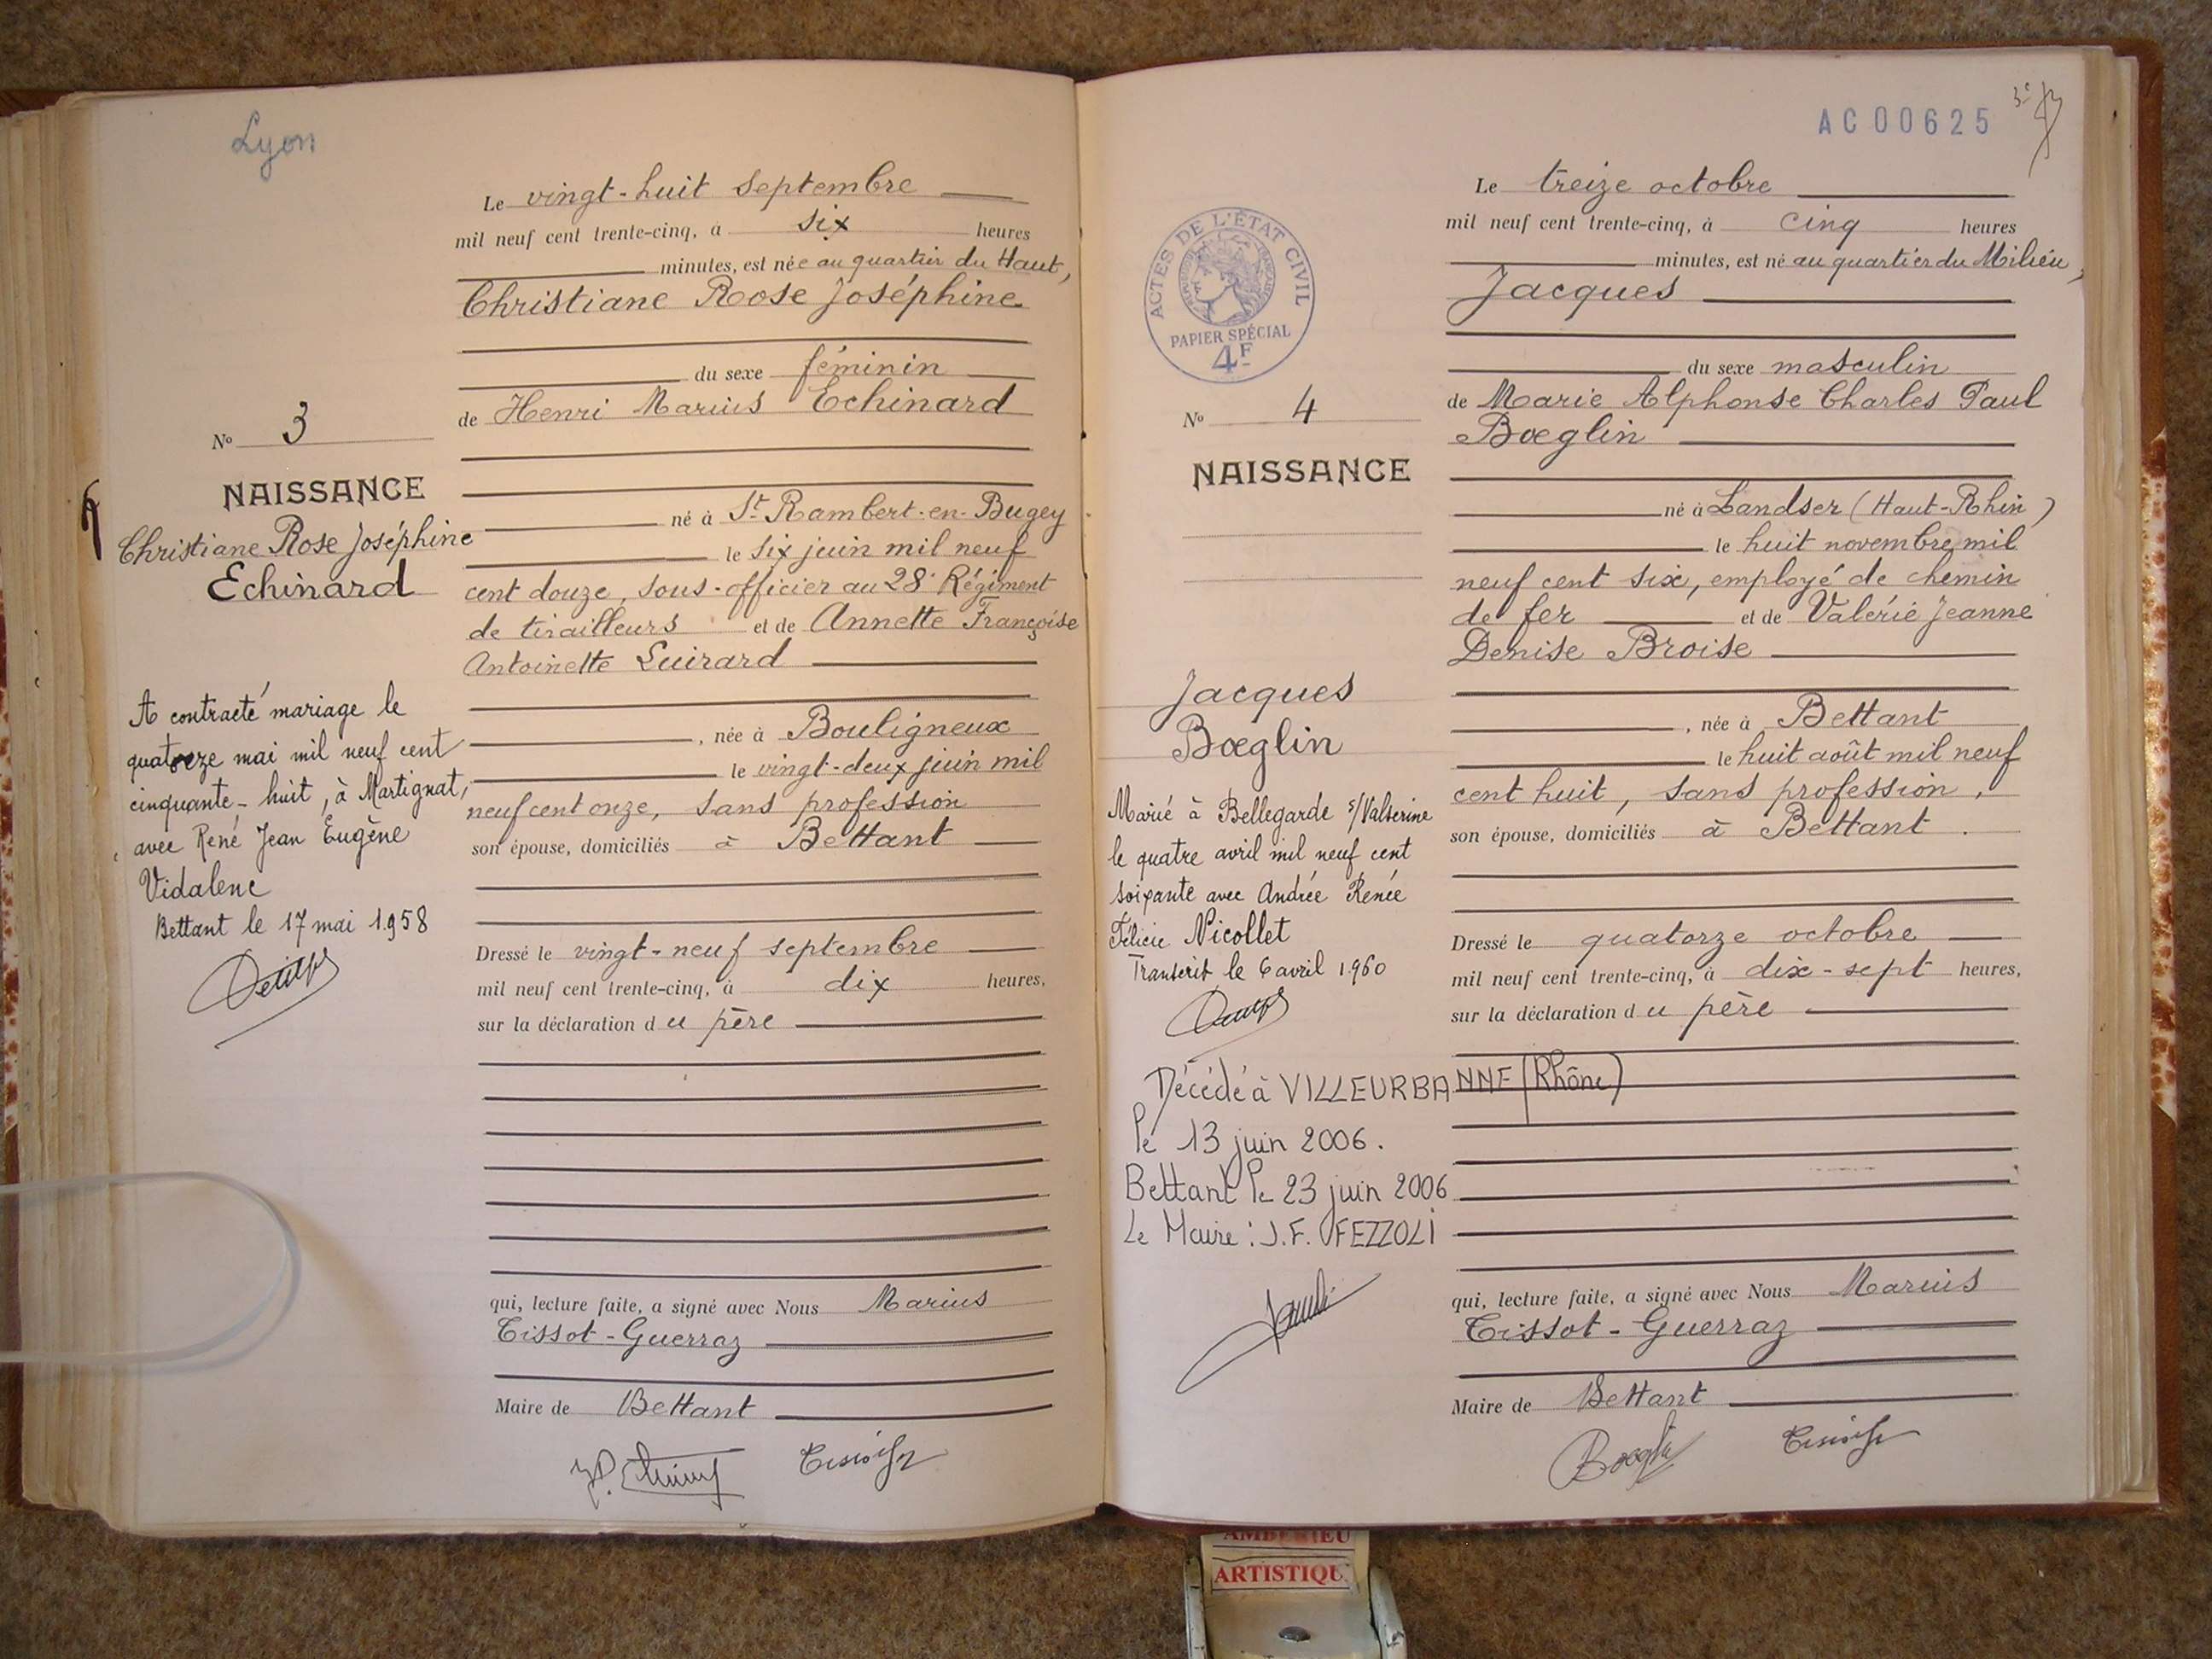 Lyon
Le vingt-huit Septembre
mil neuf cent trente-cinq, à six heures
minutes, est née au quartier du Haut,
Christiane Rose Joséphine
du sexe féminin
de Henri Marius Echinard
No 3
NAISSANCE
Christiane Rose Joséphine
Echinard
né à St Rambert-en-Bugey
le six juin mil neuf
cent douze, sous-officier au 28e Régiment
de tirailleurs et de Annette Françoise
Antoinette Luirard
, née à Bouligneux
le vingt-deux juin mil
neuf cent onze, sans profession
son épouse, domiciliés à Bettant
A contracté mariage le
quatorze mai mil neuf cent
cinquante-huit, à Martignat,
avec René Jean Eugène
Vidalenc
Bettant le 17 mai 1958
Dressé le vingt-neuf septembre
mil neuf cent trente-cinq, à dix heures,
sur la déclaration du père
qui, lecture faite, a signé avec Nous Marius
Tissot-Guerraz
Maire de Bettant
AC00625
ACTES DE L'ÉTAT CIVIL
PAPIER SPÉCIAL
4F
Le treize octobre
mil neuf cent trente-cinq, à cinq heures
minutes, est né au quartier du Milieu,
Jacques
du sexe masculin
de Marie Alphonse Charles Paul
Bœglin
No 4
NAISSANCE
Jacques
Bœglin
né à Landser (Haut-Rhin)
le huit novembre mil
neuf cent six, employé de chemin
de fer et de Valérie Jeanne
Denise Broise
, née à Bettant
le huit août mil neuf
cent huit, sans profession,
son épouse, domiciliés à Bettant.
Marié à Bellegarde s/Valserine
le quatre avril mil neuf cent
soixante avec Andrée Renée
Félicie Nicollet
Transcrit le 6 avril 1960
Décédé à VILLEURBANNE (Rhône)
le 13 juin 2006.
Bettant le 23 juin 2006
Le Maire : J.F. FEZZOLI
Dressé le quatorze octobre
mil neuf cent trente-cinq, à dix-sept heures,
sur la déclaration du père
qui, lecture faite, a signé avec Nous Marius
Tissot-Guerraz
Maire de Bettant
Bœglin
AMBERIEU
ARTISTIQU